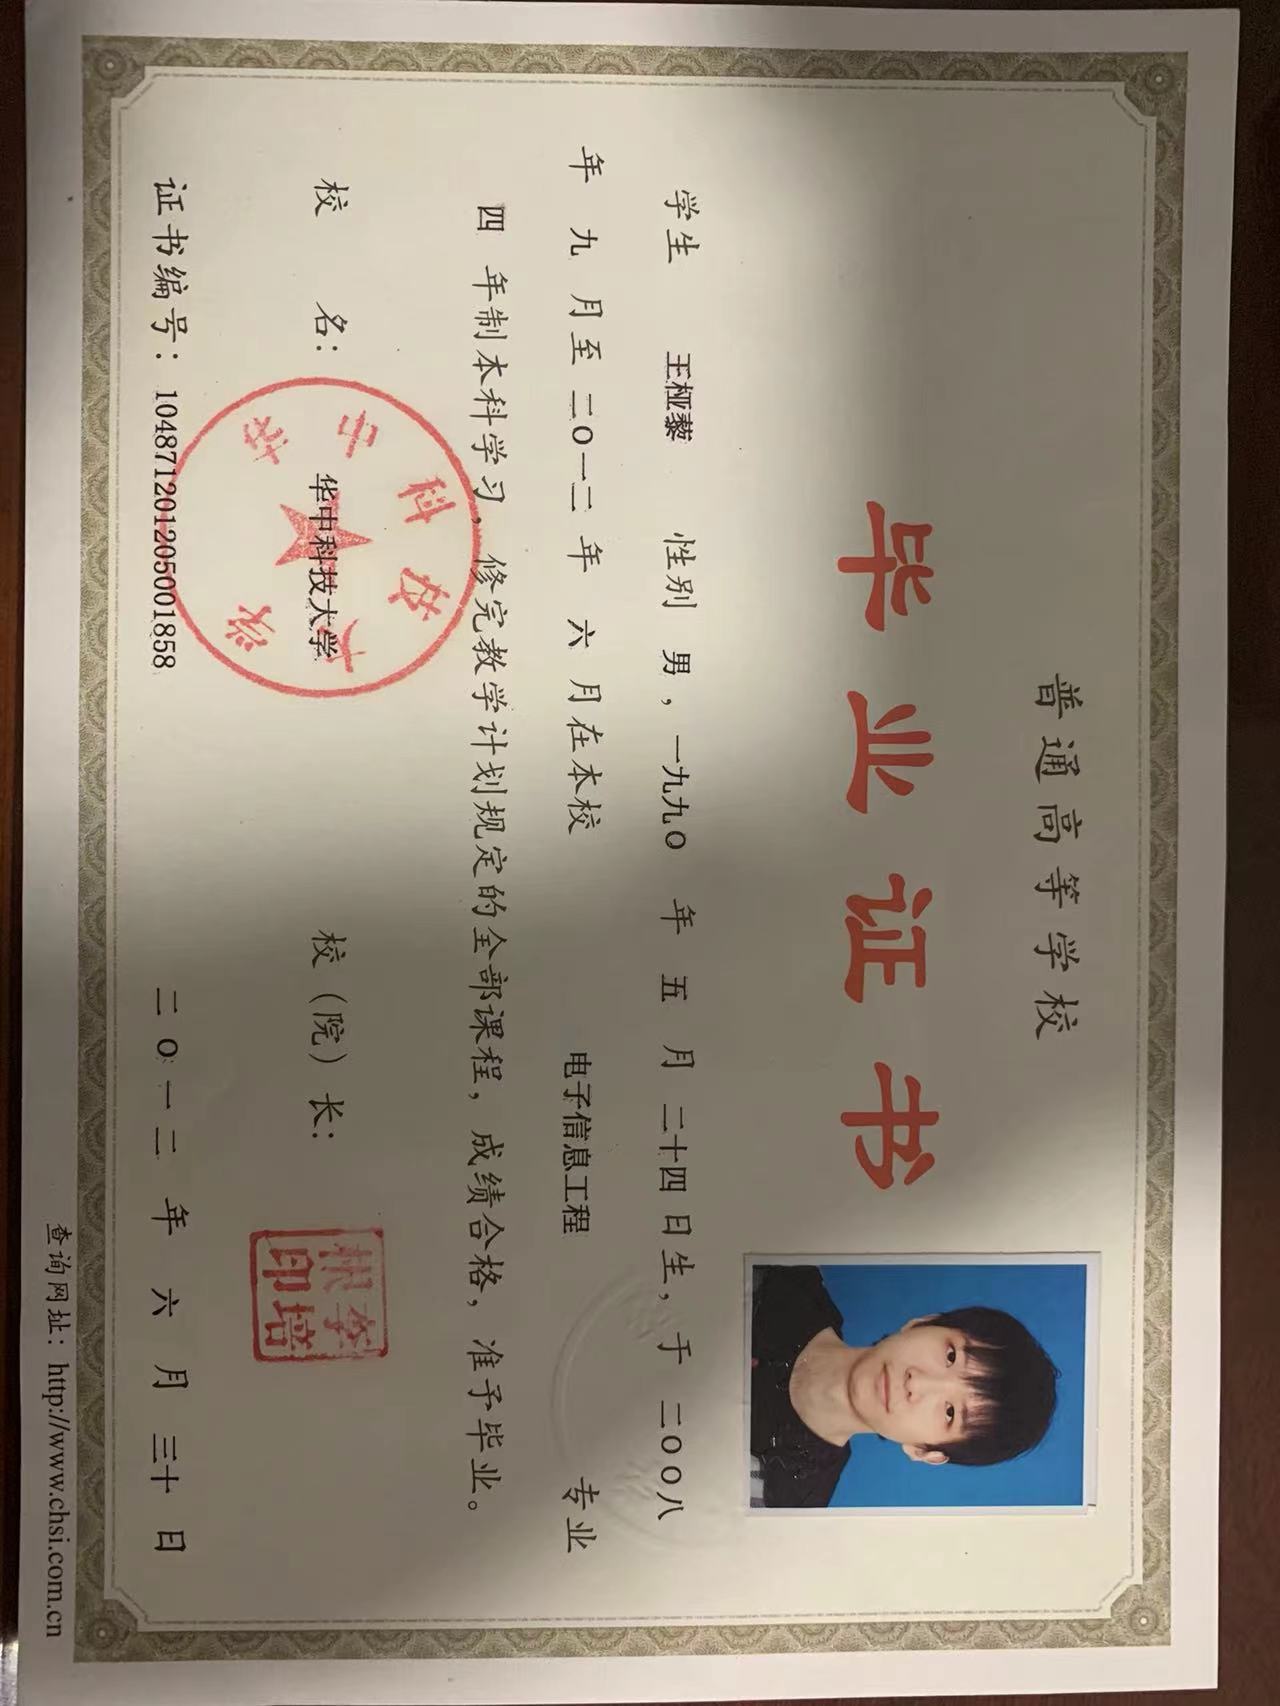 普通高等学校
毕业证书
学生 王桠藜 性别 男，一九九〇 年 五 月 二十四 日生，于 二〇〇八
年 九 月至 二〇一二 年 六 月在本校 电子信息工程 专业
四 年制本科学习，修完教学计划规定的全部课程，成绩合格，准予毕业。
校 名： 华中科技大学 校（院）长：
华中科技大学
李培根印
证书编号：104871201205001858 二〇一二 年 六 月 三十 日
查询网址：http://www.chsi.com.cn